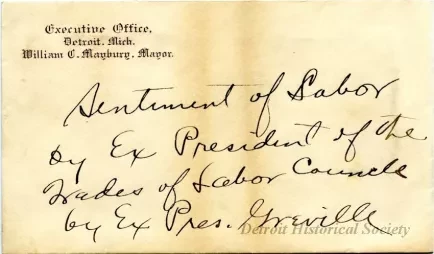 Executive Office,
Detroit, Mich.
William C. Maybury, Mayor.
Sentiment of Labor
by Ex President of the
Trades of Labor Councle
by Ex Pres. Greville
Detroit Historical Society